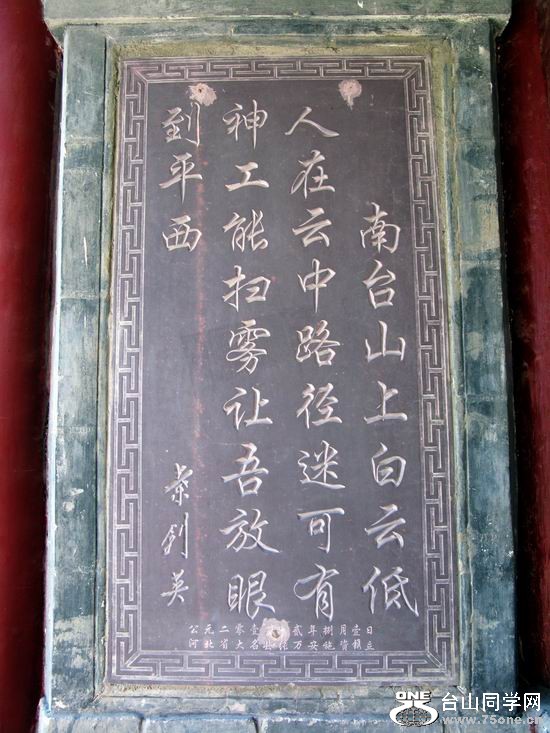 南台山上白云低
人在云中路径迷可有
神工能扫雾让吾放眼
到平西
剑英
公元二零壹贰年捌月壹日
河北省大名县 万安施资 立
ONE 台山同学网
www.75one.com